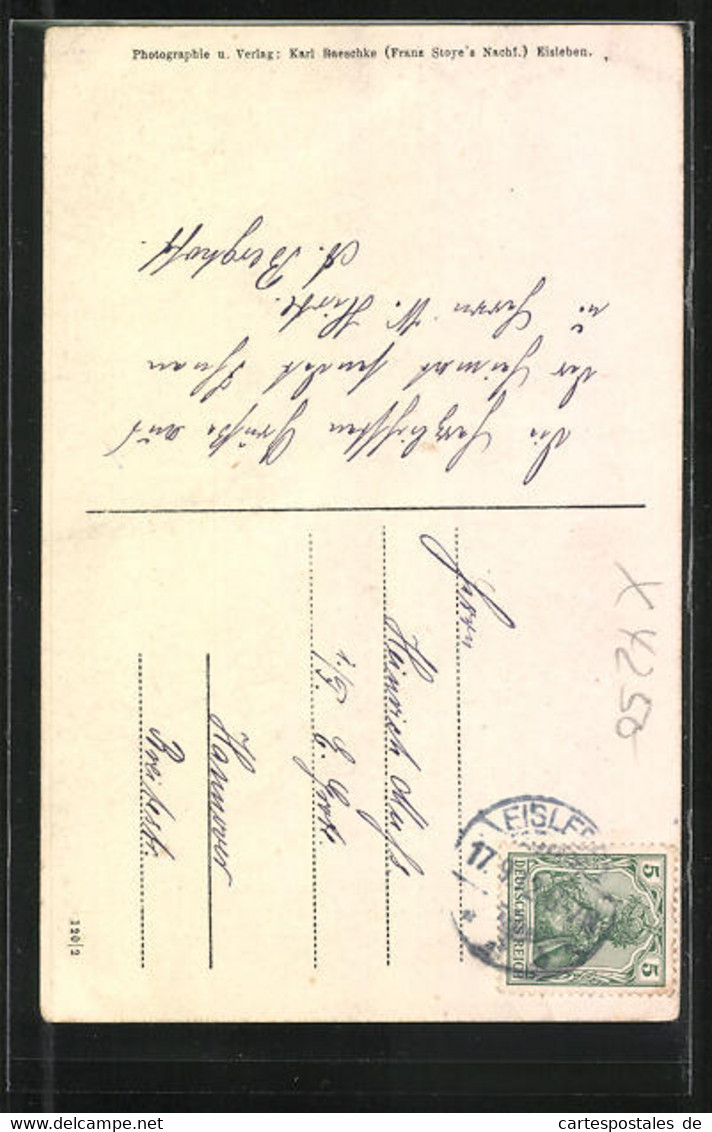 Photographie u. Verlag: Karl Baeschke (Franz Stoye's Nachf.) Eisleben.
Die herzlichsten Grüße aus
der Heimat sendet Ihnen
u. Herrn W.
A. Berghoff.
Herrn
Heinrich
Hannover
Breitestr.
EISLEB
17.
DEUTSCHES REICH
5
5
X 4250
120|2
www.cartespostales.de
cartespostales.de